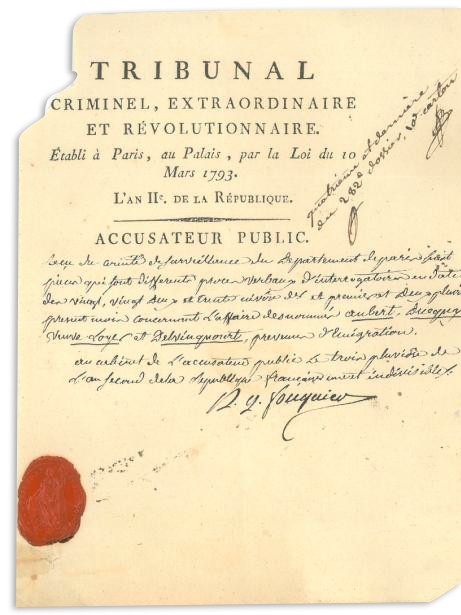 TRIBUNAL
CRIMINEL, EXTRAORDINAIRE
ET RÉVOLUTIONNAIRE.
Établi à Paris, au Palais, par la Loi du 10
Mars 1793.
L'AN IIe. DE LA RÉPUBLIQUE.
quatrieme et derniere
du 282e dossier, 10e carton
ACCUSATEUR PUBLIC.
Reçu du comité de surveillance du Departement de paris huit
pieces qui sont differents proces verbaux d'interrogatoire en date
des vingt, vingt deux et trente nivôse et premier et deux pluviôse
present mois concernant l'affaire des nommés aubert,
veuve Loyer et Delvincourt, prevenus d'emigration.
au cabinet de l'accusateur public le trois pluviôse de
l'an second de la republique française une et indivisible
A. Q. fouquier